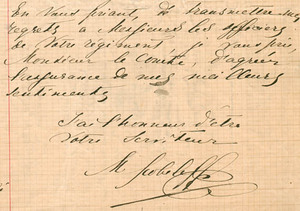 En vous priant, de transmettre mes
regrets à Messieurs les officiers
de votre régiment, je vous prie,
Monsieur le Comte, d'agréer
l'assurance de mes meilleurs
sentiments
J'ai l'honneur d'être
votre serviteur
M. Skobeleff